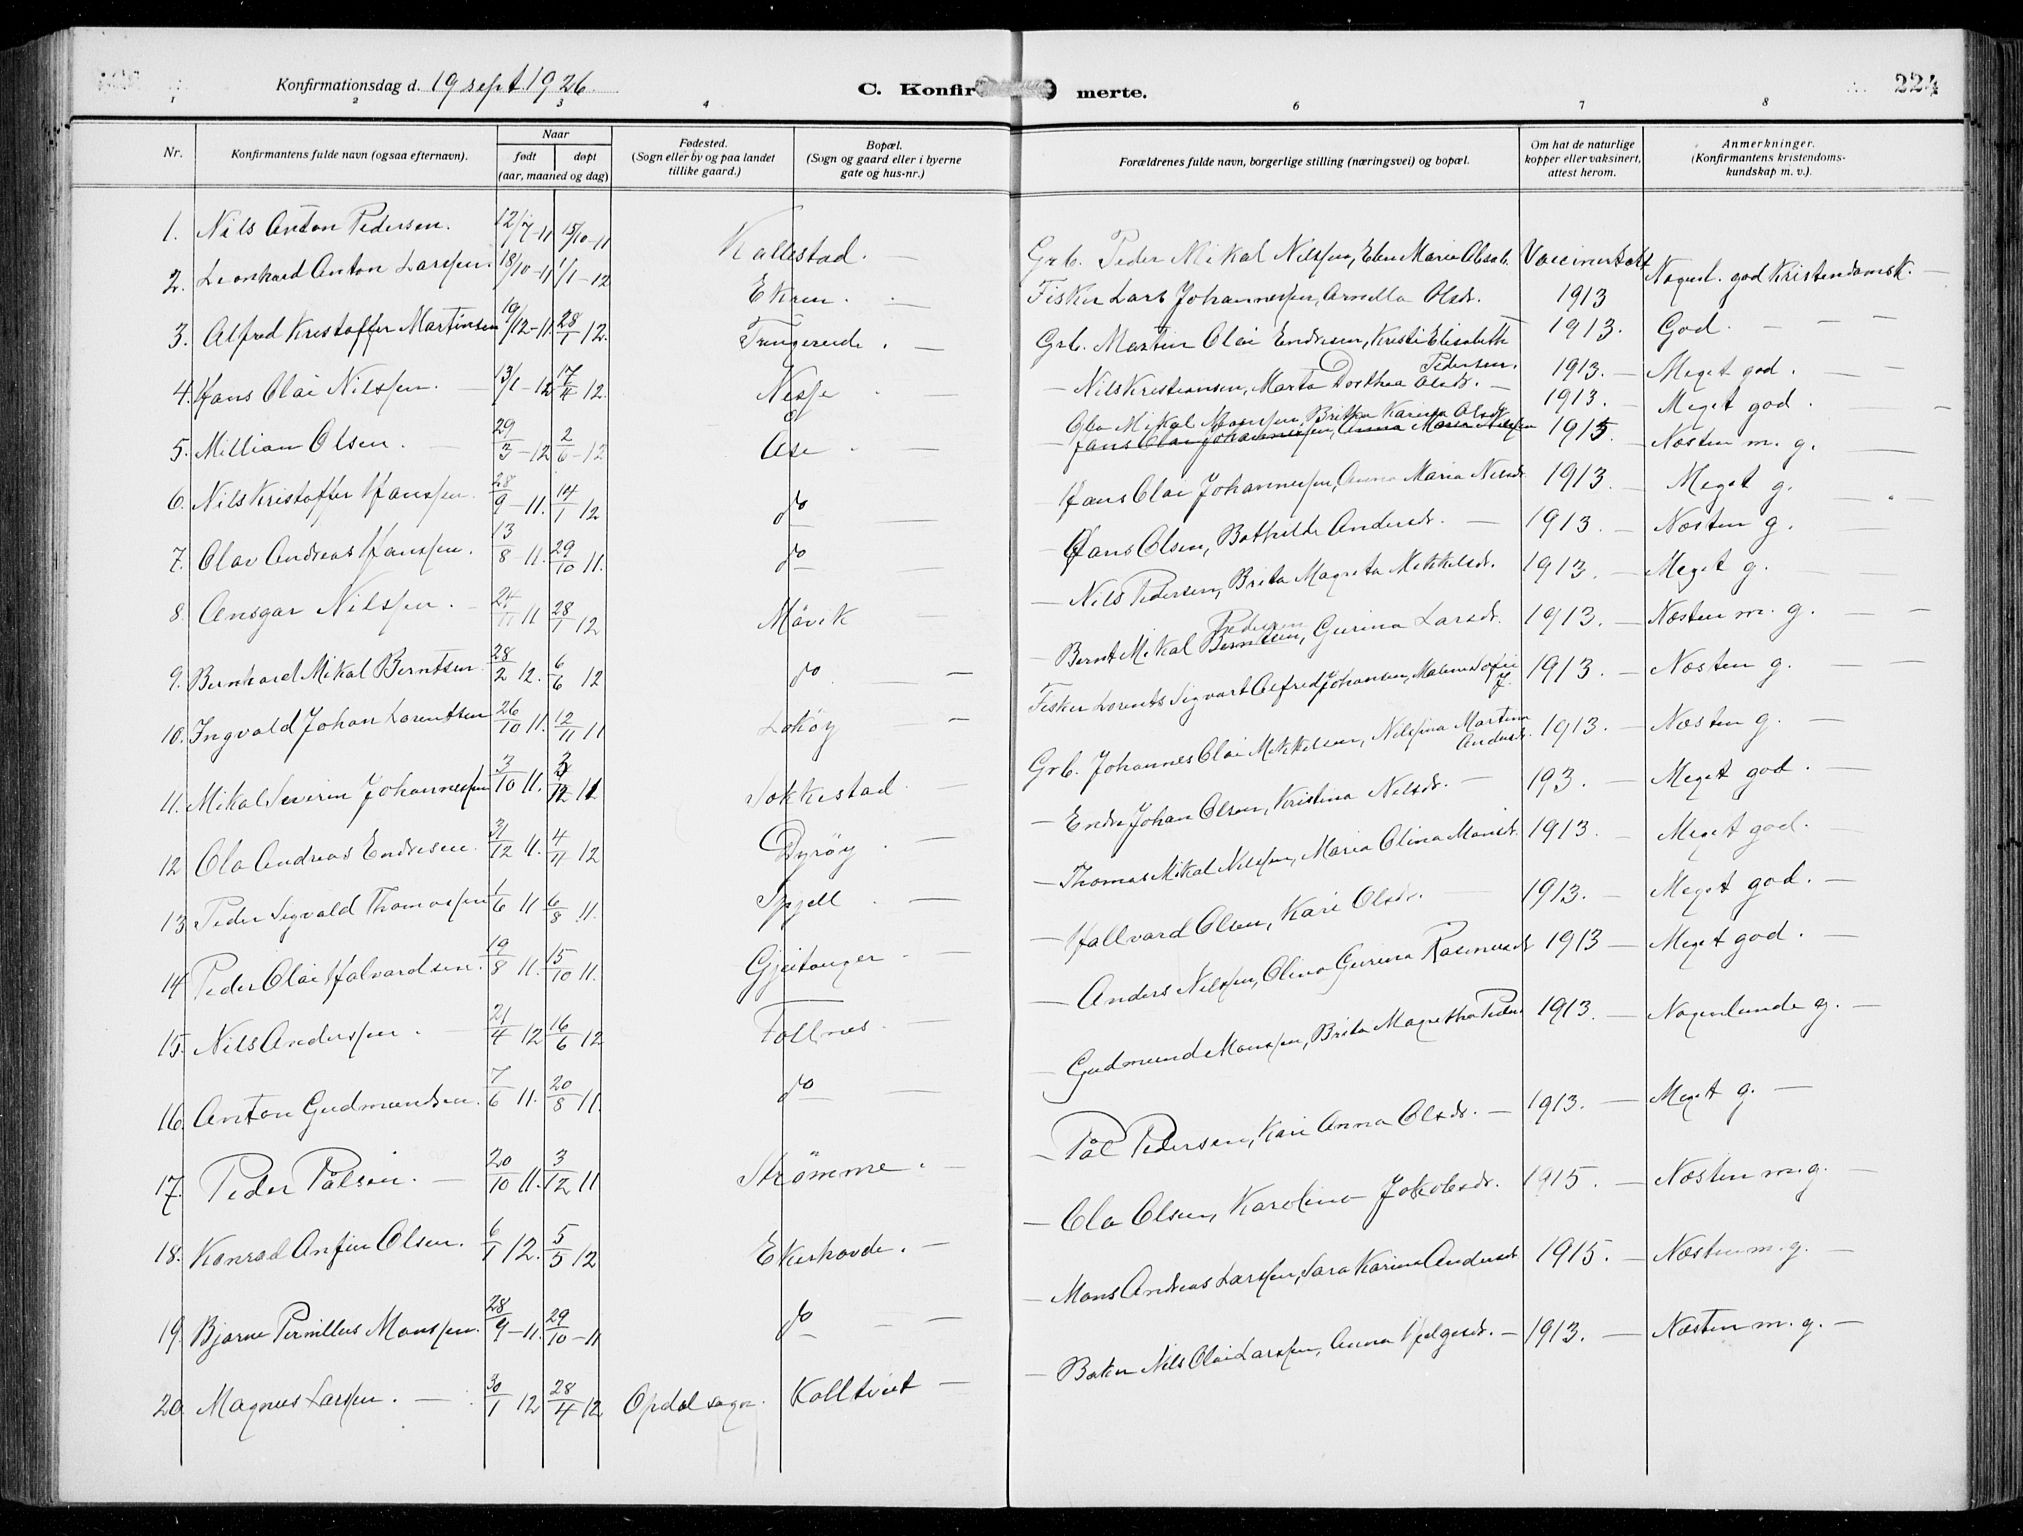 Konfirmationsdag d. 19 sept. 1926. C. Konfirmerte. 224
1 2 3 4 6 7 8
Nr. Konfirmantens fulde navn (ogsaa efternavn). Naar født døpt (aar, maaned og dag) Fødested. (Sogn eller by og paa landet tillike gaard.) Bopæl. (Sogn og gaard eller i byerne gate og hus-nr.) Forældrenes fulde navn, borgerlige stilling (næringsvei) og bopæl. Om hat de naturlige kopper eller vaksinert, attest herom. Anmerkninger. (Konfirmantens kristendoms-kundskap m. v.).
1. Nils Anton Pedersen. 12/7-11 15/10-11 Kallestad. — Grb. Peder Mikal Nilssen, Elen Maria Olsdr. Vaccinert att 1913 Nogenl. god Kristendomsk. —
2. Leonhard Anton Larssen. 18/10-11 1/1-12 Ekren. — Fisker Lars Johannessen, Arnilla Olsdr. 1913. God. — — —
3. Alfred Kristoffer Martinsen 19/12-11. 28/1 12. Trengereide. — Grb. Martin Olai Endresen, Kristi Elisabeth Pedersen. 1913. — Meget god. —
4. Hans Olai Nilssen. — 13/1-12 17/4 12. Nesse — — Nils Kristiansen, Marta Dorthea Olsdr. — 1913. — Meget god.
5. Millian Olsen. — 29/3-12 2/6-12 Åse. — — Ola Mikal Monssen, Britha Karina Olsdr. 1915. — Næsten m. g.
Hans Olai Johannessen, Anna Maria Nilssen
6. Nils Kristoffer Hanssen. 28/9-11. 14/1 12 do — — Hans Olai Johannessen, Anna Maria Nilsdr. 1913. — Meget g.
7. Olav Andreas Hanssen. 13/8 11. 29/10 11. do — — Hans Olsen, Bothilde Andersdr. — 1913. — Næsten g.
8. Ansgar Nilssen. — 24/11 11 28/1 12 Måvik — — Nils Pedersen, Brita Magreta Mikkelsdr. 1913. — Meget g.
9. Bernhard Mikal Berntsen. 28/2 12. 6/6 12 do. — — Bernt Mikal Berntsen Pedersen, Gurina Larsdr. 1913. — Næsten m. g. — —
10. Ingvald Johan Lorentsen 26/10 11. 12/11 11 Lokøy — Fisker Lorents Sigvart Alfred Johansen, Malena Sofie J. 1913. — Næsten g. — —
11. Mikal Severin Johannessen 3/10 11. 3/12 11 Søkkestad — Grb. Johannes Olai Mikkelsen, Nilssina Martina Andersdr. 1913. — Næsten g. —
12 Ola Andreas Endresen. 31/12 11. 4/4 12 Dyrøy. — — Endre Johan Olsen, Kristina Nilsdr. — 193. — Meget god. —
13 Peder Sigvald Thomassen 1/6 11 6/8 11. Spjell — — Thomas Mikal Nilssen, Maria Olina Monsdr. 1913. — Meget god. —
14 Peder Olai Halvardsen. 19/8 11. 15/10 11. Gjeitanger. — — Hallvard Olsen, Kari Olsdr. — 1913. — Meget god. —
15. Nils Anderssen. — 21/4 12 16/6 12 Follnes. — — Anders Nilssen, Olina Gurina Rasmusdr 1913 — Meget god. —
16. Anton Gudmundsen. 7/6 11. 20/8 11. do — — Gudmund Monssen, Brita Magretha Peders 1913. — Nogenlunde g. —
17. Peder Pålsen. — 20/10 11. 3/12 11 Strømme. — — Pål Pedersen, Kari Anna Olsdr. — 1913. — Meget g. —
18. Konrad Anfin Olsen. 6/1 12. 5/5 12 Ekerhovde. — — Ola Olsen, Karolina Jakobsdr. 1915. — Næsten m. g. —
19. Bjarne Pernillus Monssen. 28/9-11. 29/10-11 do — — — Mons Andreas Larssen, Sara Karina Andersdr 1915. — Næsten m. g. —
20. Magnus Larssen. — 30/1 12 28/4 12 Opdal sogn. Kolltveit — — Baker Nils Olai Larssen, Anna Helgesdr. — 1913. — Næsten m. g. —